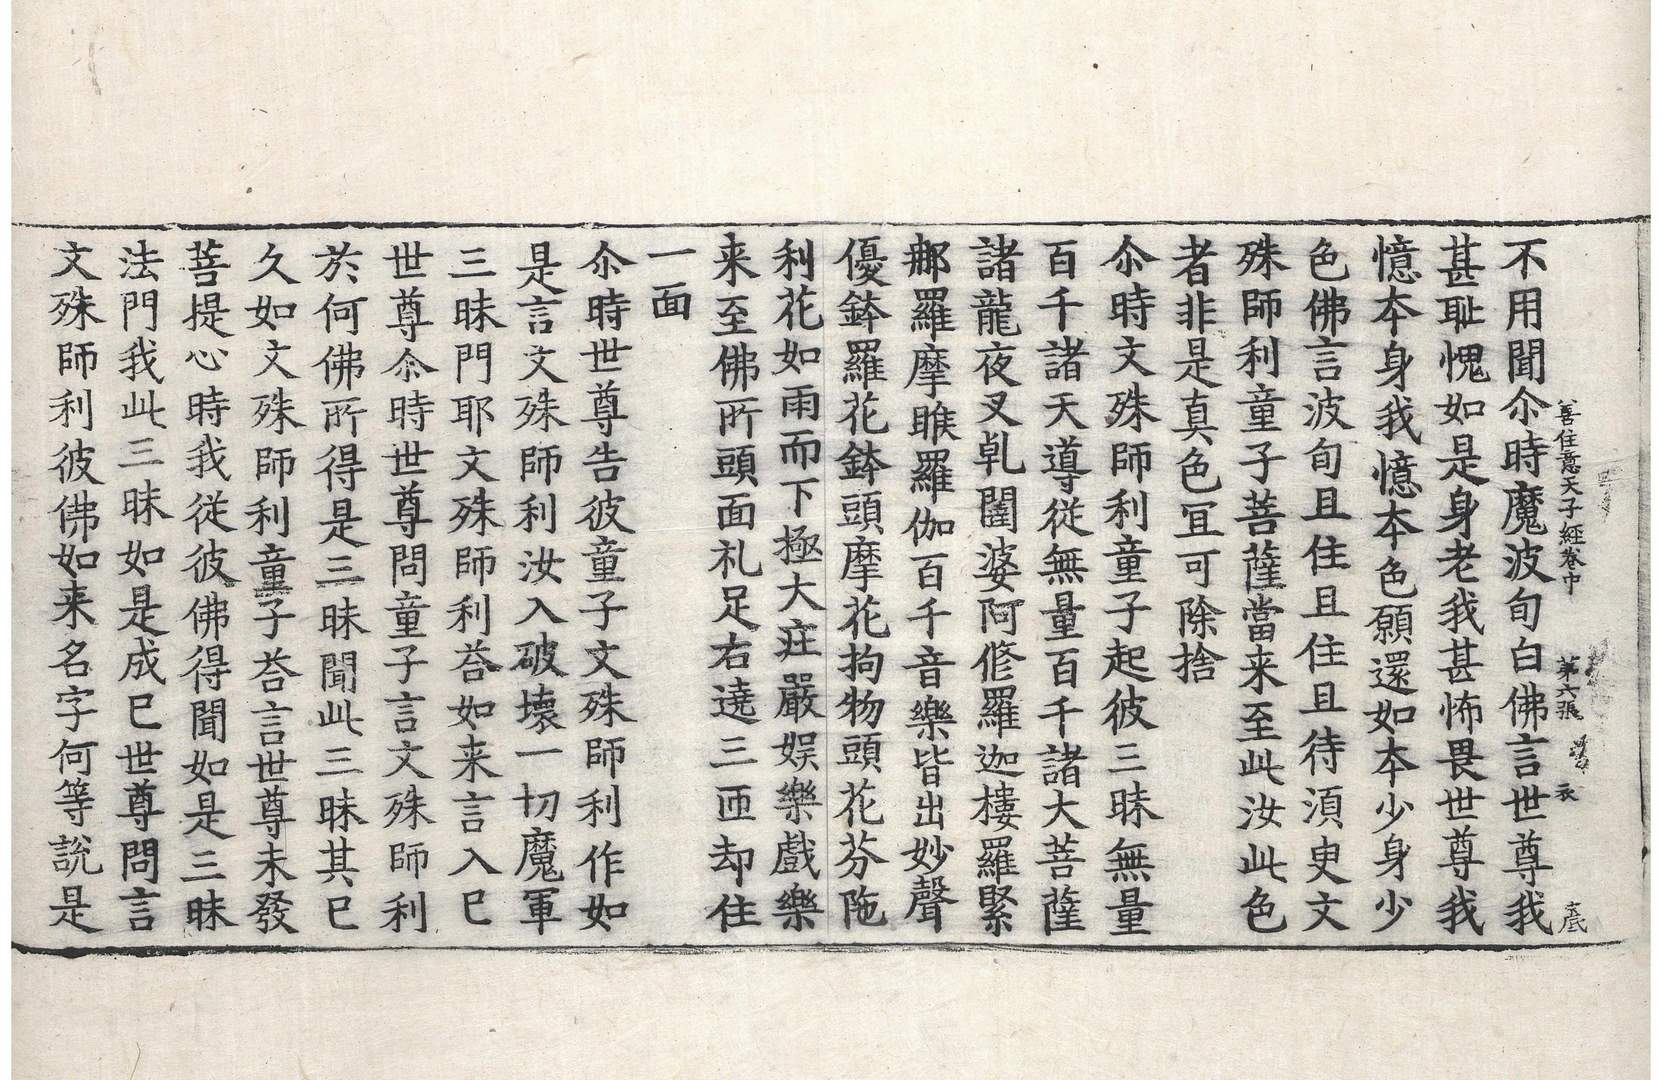 善住意天子經卷中 第六張 衣
不用聞尒時魔波旬白佛言世尊我
甚恥愧如是身老我甚怖畏世尊我
憶本身我憶本色願還如本少身少
色佛言波旬且住且住且待湏臾文
殊師利童子菩薩當来至此汝此色
者非是真色冝可除捨
尒時文殊師利童子起彼三昧無量
百千諸天導從無量百千諸大菩薩
諸龍夜叉乹闥婆阿修羅迦樓羅緊
那羅摩睺羅伽百千音樂皆出妙聲
優鉢羅花鉢頭摩花拘物頭花芬陁
利花如雨而下極大㽵嚴娯樂戲樂
来至佛所頭面礼足右遶三匝却住
一面
尒時世尊告彼童子文殊師利作如
是言文殊師利汝入破壞一切魔軍
三昧門耶文殊師利荅如来言入已
世尊尒時世尊問童子言文殊師利
於何佛所得是三昧聞此三昧其已
久如文殊師利童子荅言世尊未發
菩提心時我従彼佛得聞如是三昧
法門我此三昧如是成已世尊問言
文殊師利彼佛如来名字何等說是